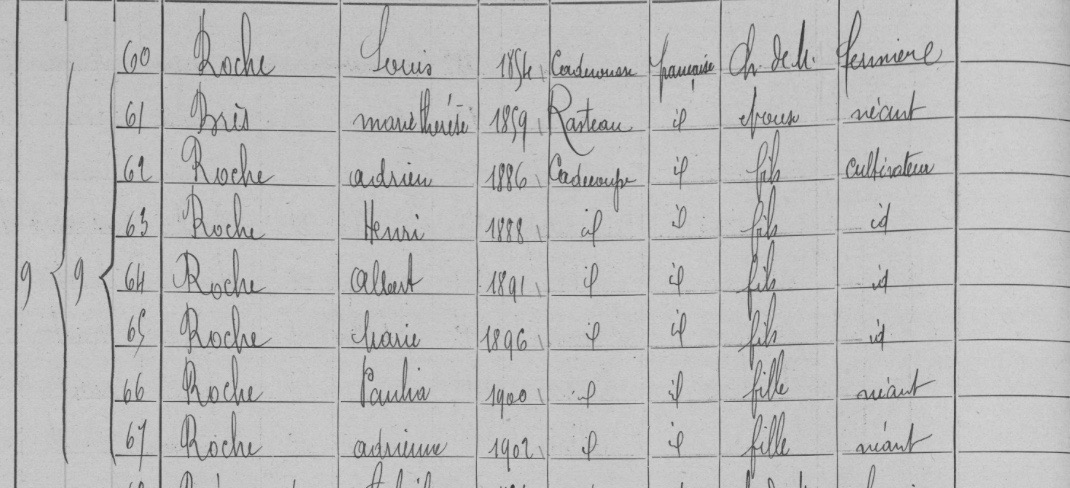 60 Roche Louis 1854 Caderousse française Ch. de M. fermière
61 Brès marie thérèse 1859 Rasteau id époux néant
62 Roche adrien 1886 Caderousse id fils cultivateur
63 Roche Henri 1888 id id fils id
64 Roche albert 1891 id id fils id
65 Roche Marie 1896 id id fils id
9 9
66 Roche Paulia 1900 id id fille néant
67 Roche adrienne 1902 id id fille néant